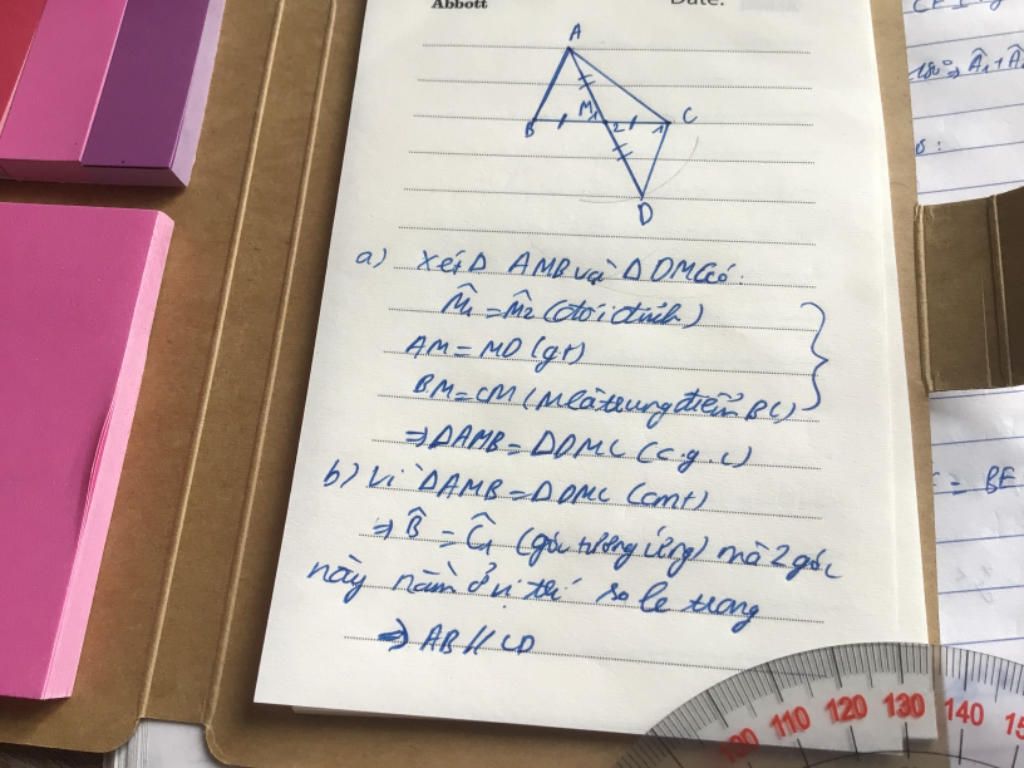 Abbott
Date:
A
M 1
B
2
1
C
D
a) Xét Δ AMB và Δ DMC có:
M̂1 = M̂2 (đối đỉnh)
AM = MD (gt)
BM = CM (M là trung điểm BC)
⇒ ΔAMB = ΔDMC (c.g.c)
b) Vì ΔAMB = ΔDMC (cmt)
⇒ B̂ = Ĉ1 (góc tương ứng) mà 2 góc
này nằm ở vị trí so le trong
⇒ AB // CD
Â1 + Â2
= BE
100 110 120 130 140